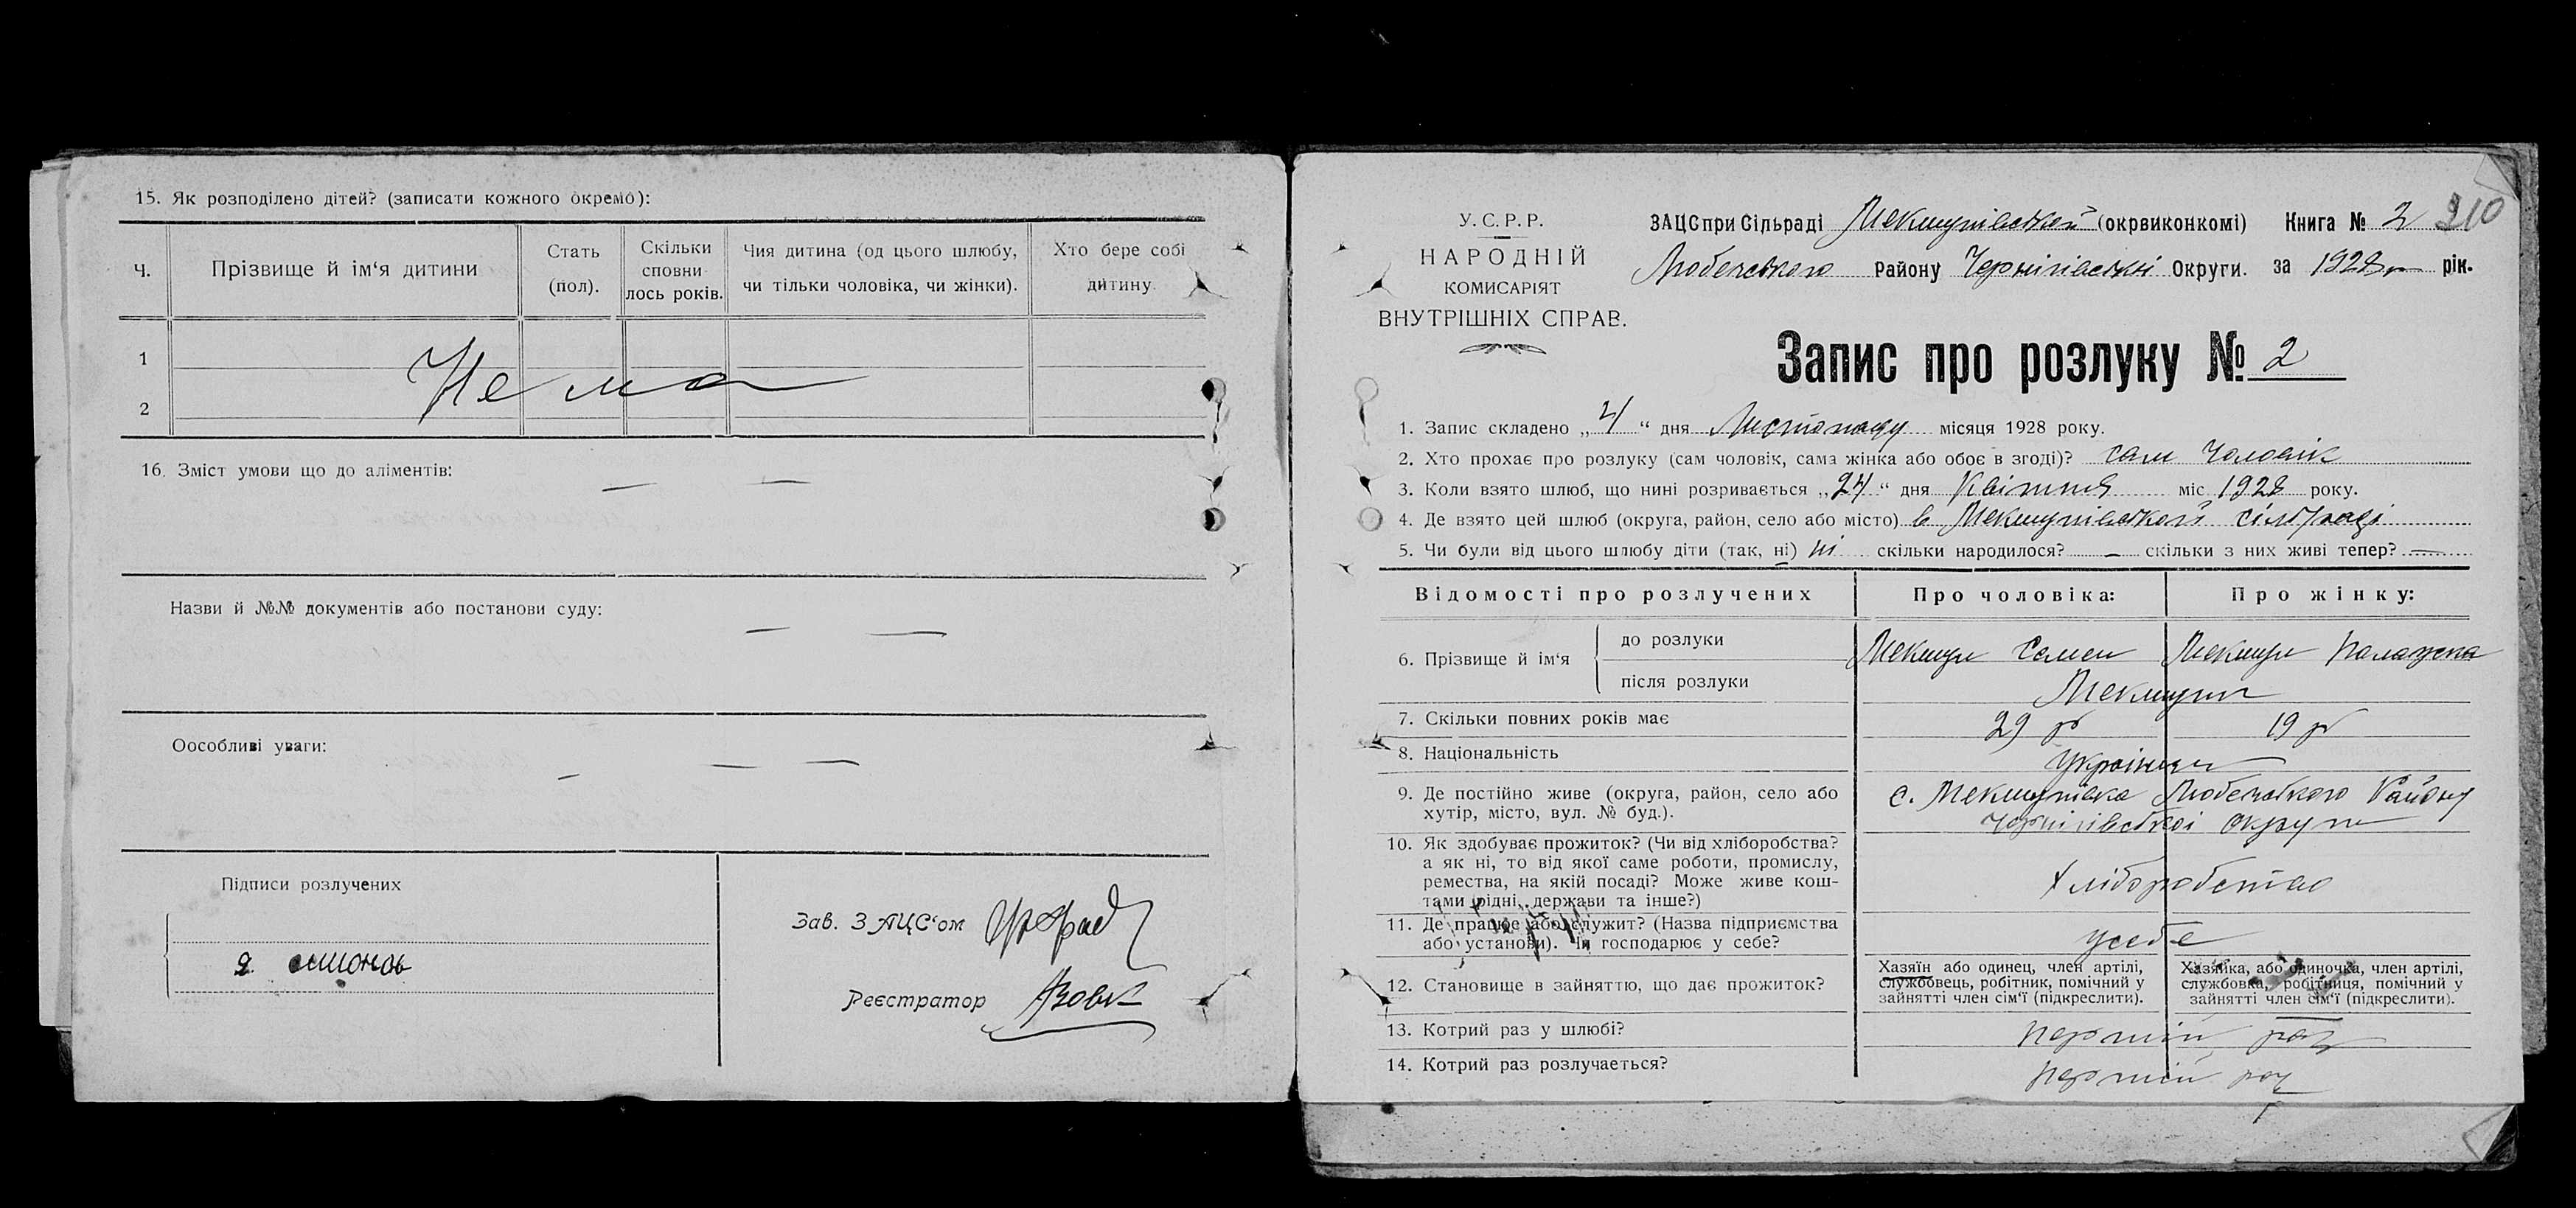 15. Як розподілено дітей? (записати кожного окремо):
Ч.
Прізвище й ім‘я дитини
Стать (пол).
Скільки сповни- лось років.
Чия дитина (од цього шлюбу, чи тільки чоловіка, чи жінки).
Хто бере собі дитину
1
Нема
2
16. Зміст умови що до аліментів: — —
Назви й №№ документів або постанови суду: — —
Оособливі уваги: — — —
Підписи розлучених
Зав. ЗАЦС‘ом
Реєстратор
У.С.Р.Р.
НАРОДНІЙ
КОМИСАРІЯТ
ВНУТРІШНІХ СПРАВ.
ЗАЦС при Сільраді (окрвиконкомі) Книга № 2 310
Любечського Району Чернігівські Округи. за 1928 р рік.
Запис про розлуку № 2
1. Запис складено „ “ дня Листопаду місяця 1928 року.
2. Хто прохає про розлуку (сам чоловік, сама жінка або обоє в згоді)? сам Чоловік
3. Коли взято шлюб, що нині розривається „24“ дня Квітня міс 1928 року.
4. Де взято цей шлюб (округа, район, село або місто) в сільраді
5. Чи були від цього шлюбу діти (так, ні) ні скільки народилося? — скільки з них живі тепер? —
Відомості про розлучених
Про чоловіка:
Про жінку:
6. Прізвище й ім‘я
до розлуки
Семен
після розлуки
7. Скільки повних років має
29 р
19 р
8. Національність
Українци
9. Де постійно живе (округа, район, село або
хутір, місто, вул. № буд.).
с. Любечського Району
Чернігівської округи
10. Як здобуває прожиток? (Чи від хліборобства?
а як ні, то від якої саме роботи, промислу,
ремества, на якій посаді? Може живе кош-
тами рідні, держави та інше?)
Хліборобство
11. Де працює або служит? (Назва підприємства
або установи). Чи господарює у себе?
усебе
12. Становище в зайняттю, що дає прожиток?
Хазяїн або одинец, член артілі,
службовець, робітник, помічний у
зайнятті член сім‘ї (підкреслити).
Хазяйка, або одиночка, член артілі,
службовка, робітниця, помічний у
зайнятті член сім‘ї (підкреслити).
13. Котрий раз у шлюбі?
перший раз
14. Котрий раз розлучаеться?
перший раз